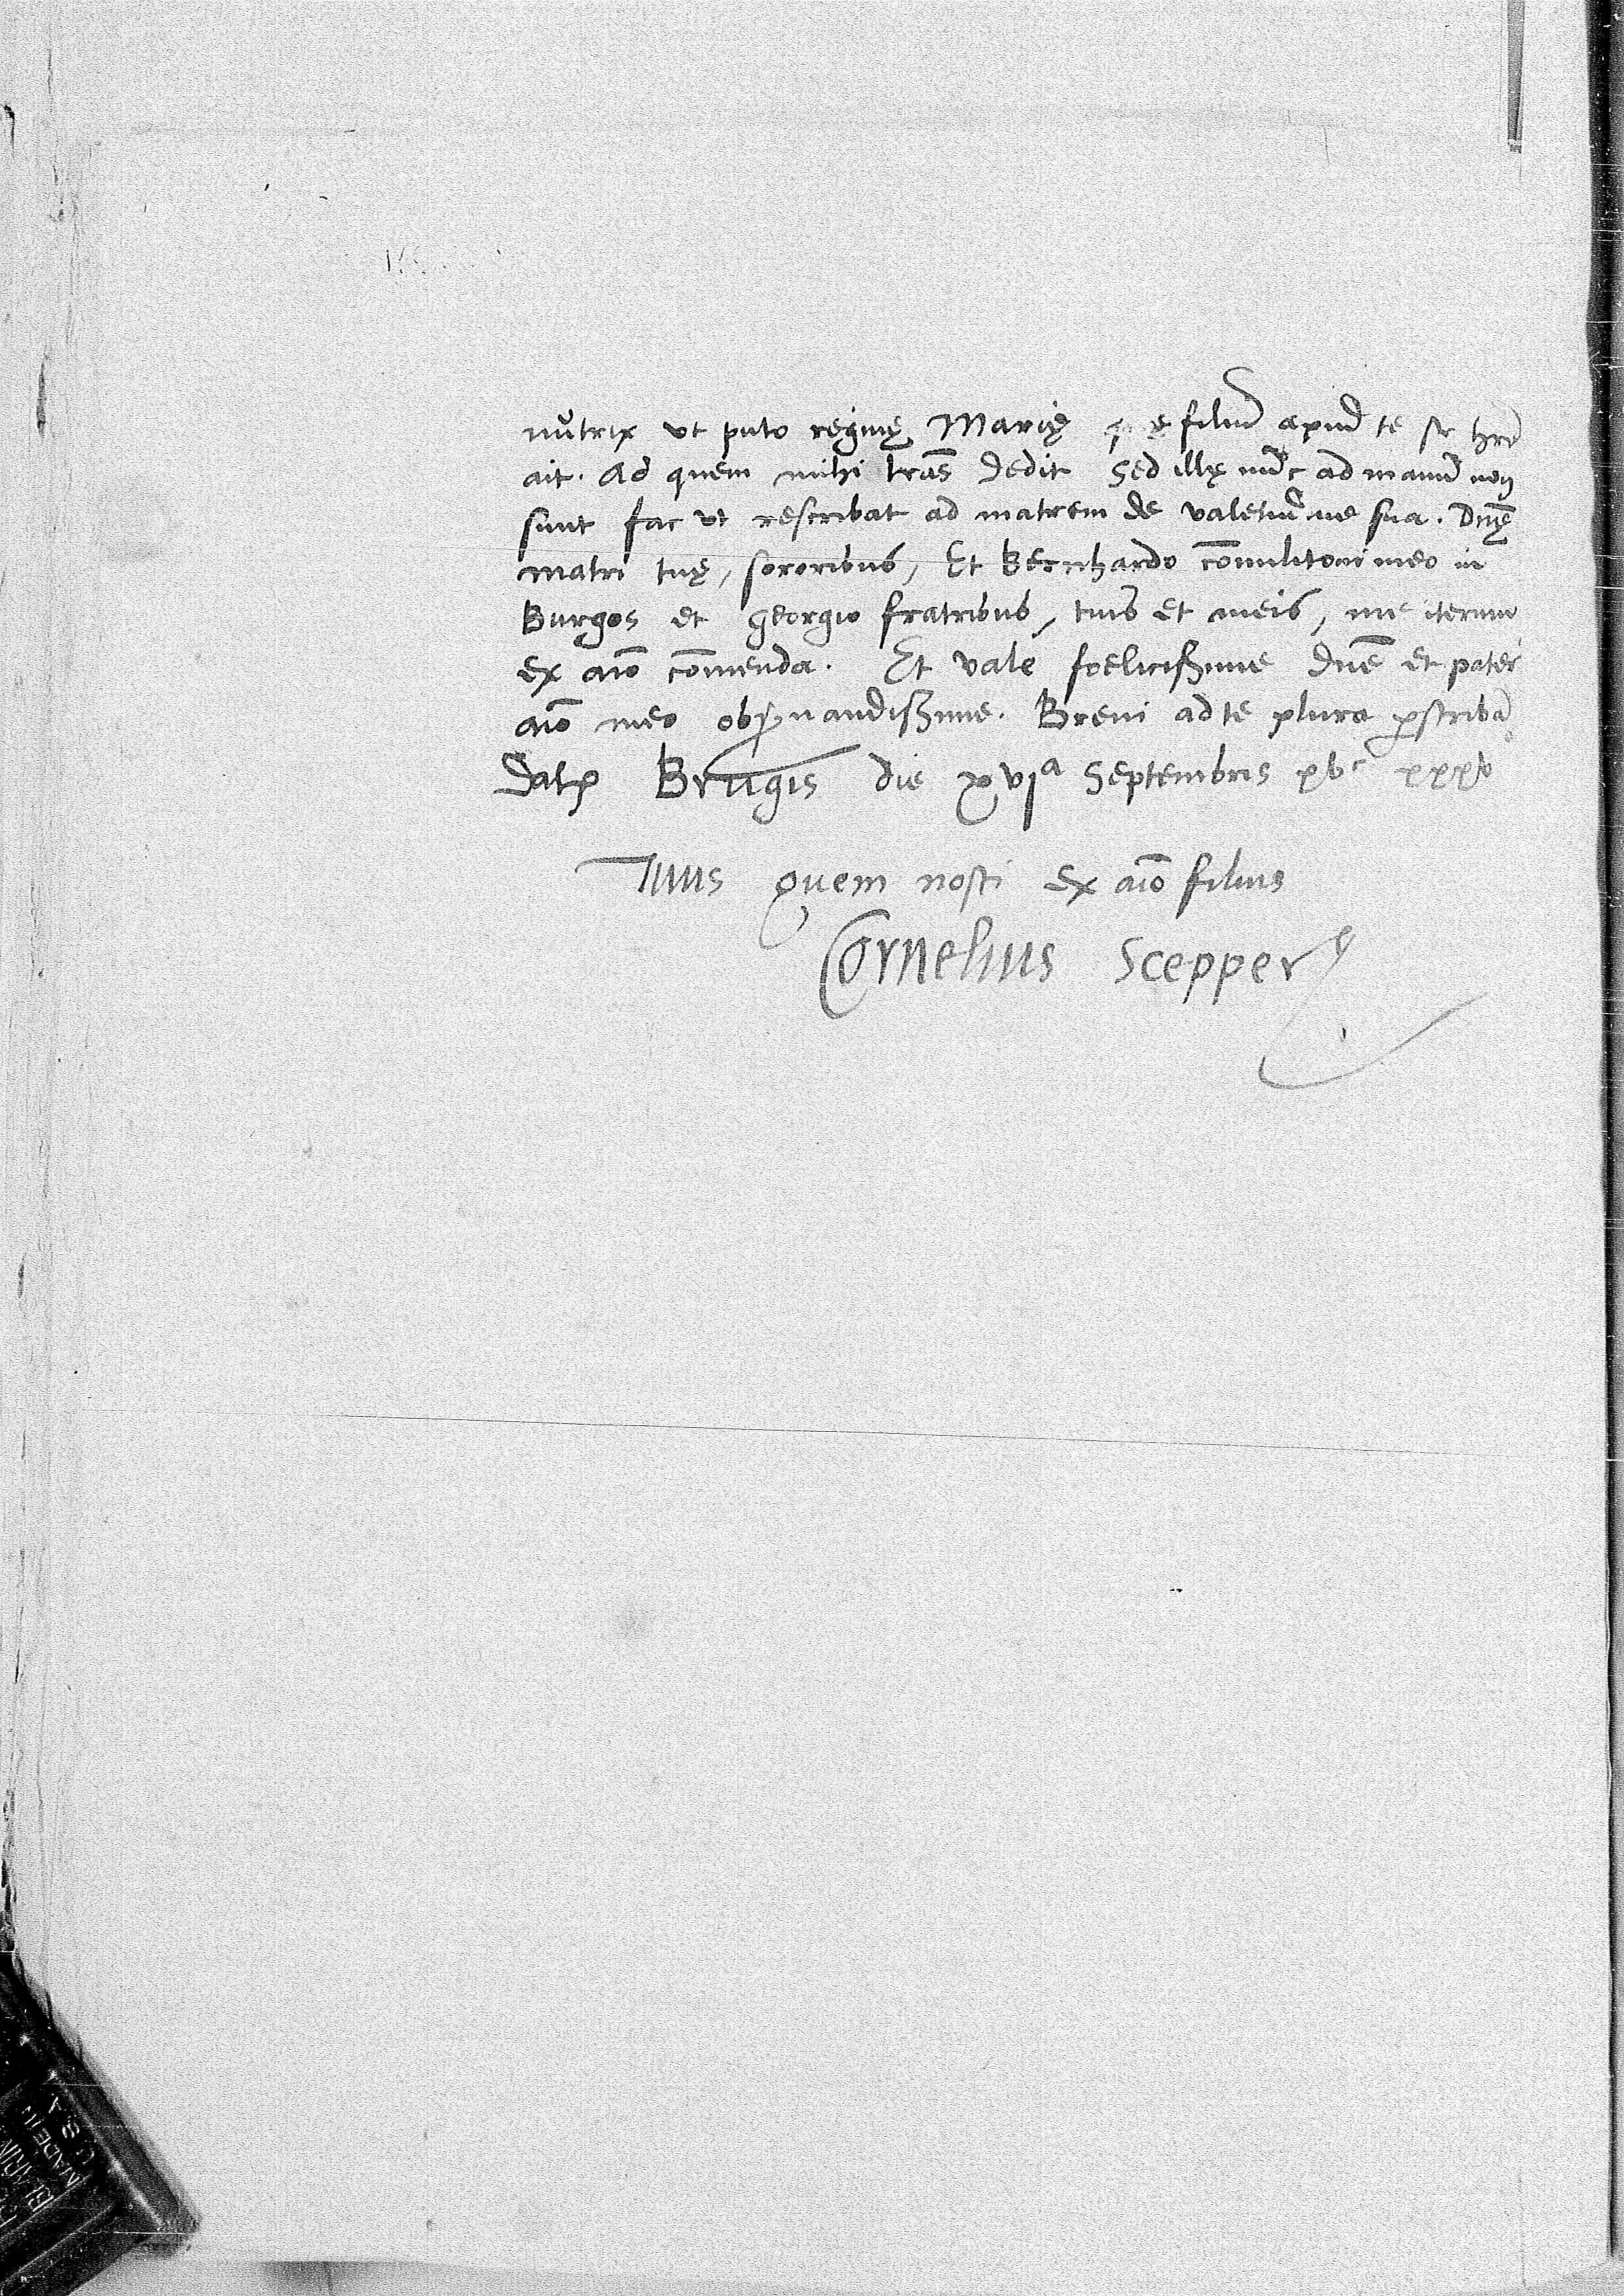 nutrix ut puto reginę Marię filiũ apud te se hrẽ
ait. Ad quem mihi lr̃as dedit Sed illę nũc ad manũ non
sunt fac ut rescribat ad matrem de valetudine sua. Dnę
matri tuę, sororibus, Et Bernhardo cõmilitoni meo in
Burgos et Georgio fratribus, tuis et meis, me iterum
ex aĩo cõmenda. Et vale foelicissime Dnẽ et pater
aĩo meo observandissime. Brevi ad te plura perscribã
Dat Brugis die xvja Septembris xvc xxxv
Tuus quem nosti ex aĩo filius
Cornelius Scepper
MADE IN
U S A